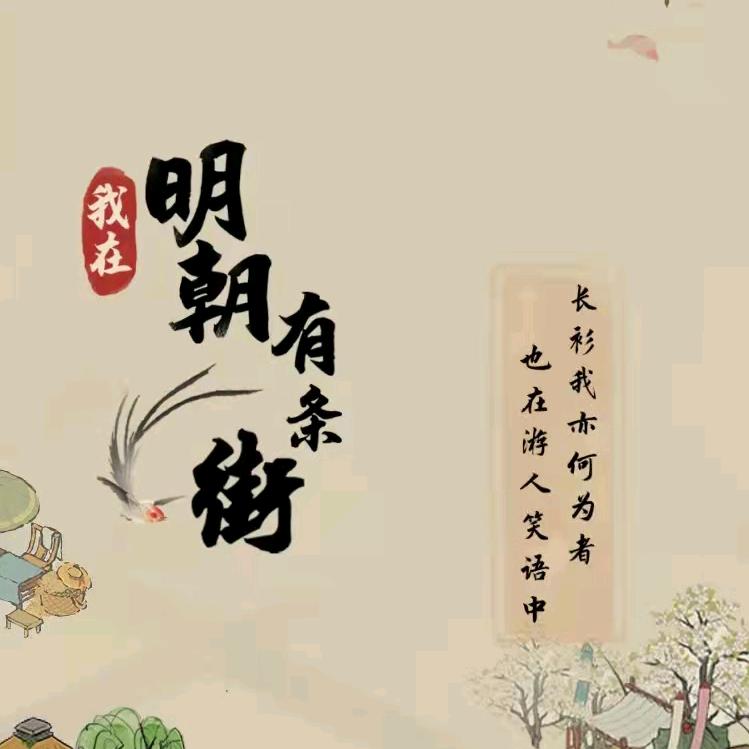 我在
明朝
有条
街
长衫我亦何为者
也在游人笑语中